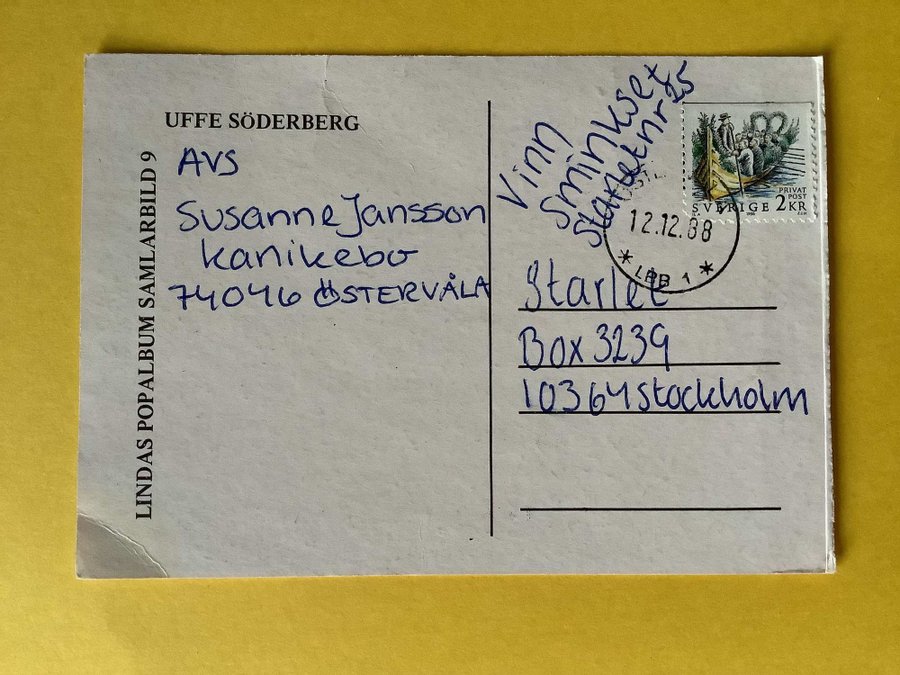 UFFE SÖDERBERG
LINDAS POPALBUM SAMLARBILD 9
AVS
Susanne Jansson
Kanikebo
74046 ÖSTERVÅLA
Vinn
Sminkset
Starlet nr 25
SVERIGE
PRIVAT
POST
2 KR
12.12.88
* LBB 1 *
Starlet
Box 3239
10364 Stockholm